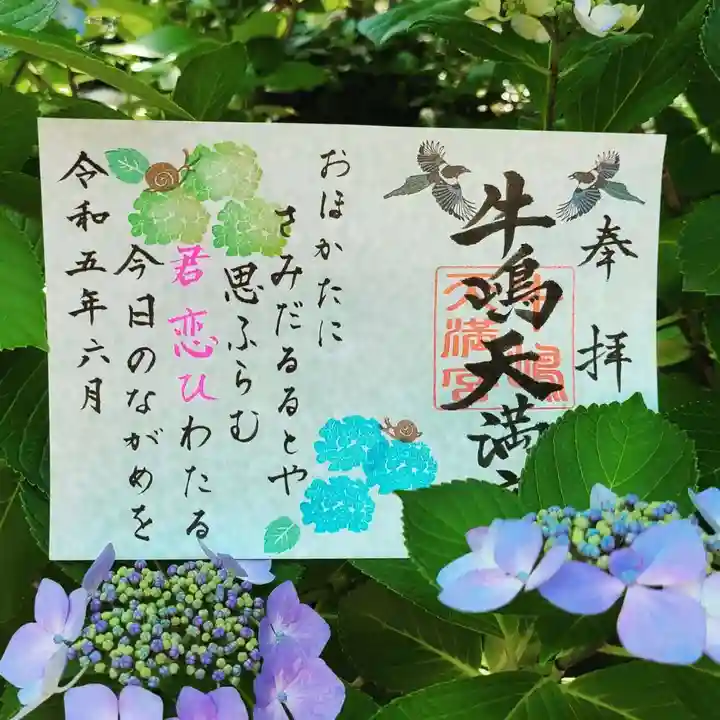 奉拝
牛嶋天満
おほかたに
さみだるるとや
思ふらむ
君恋ひわたる
今日のながめを
令和五年六月